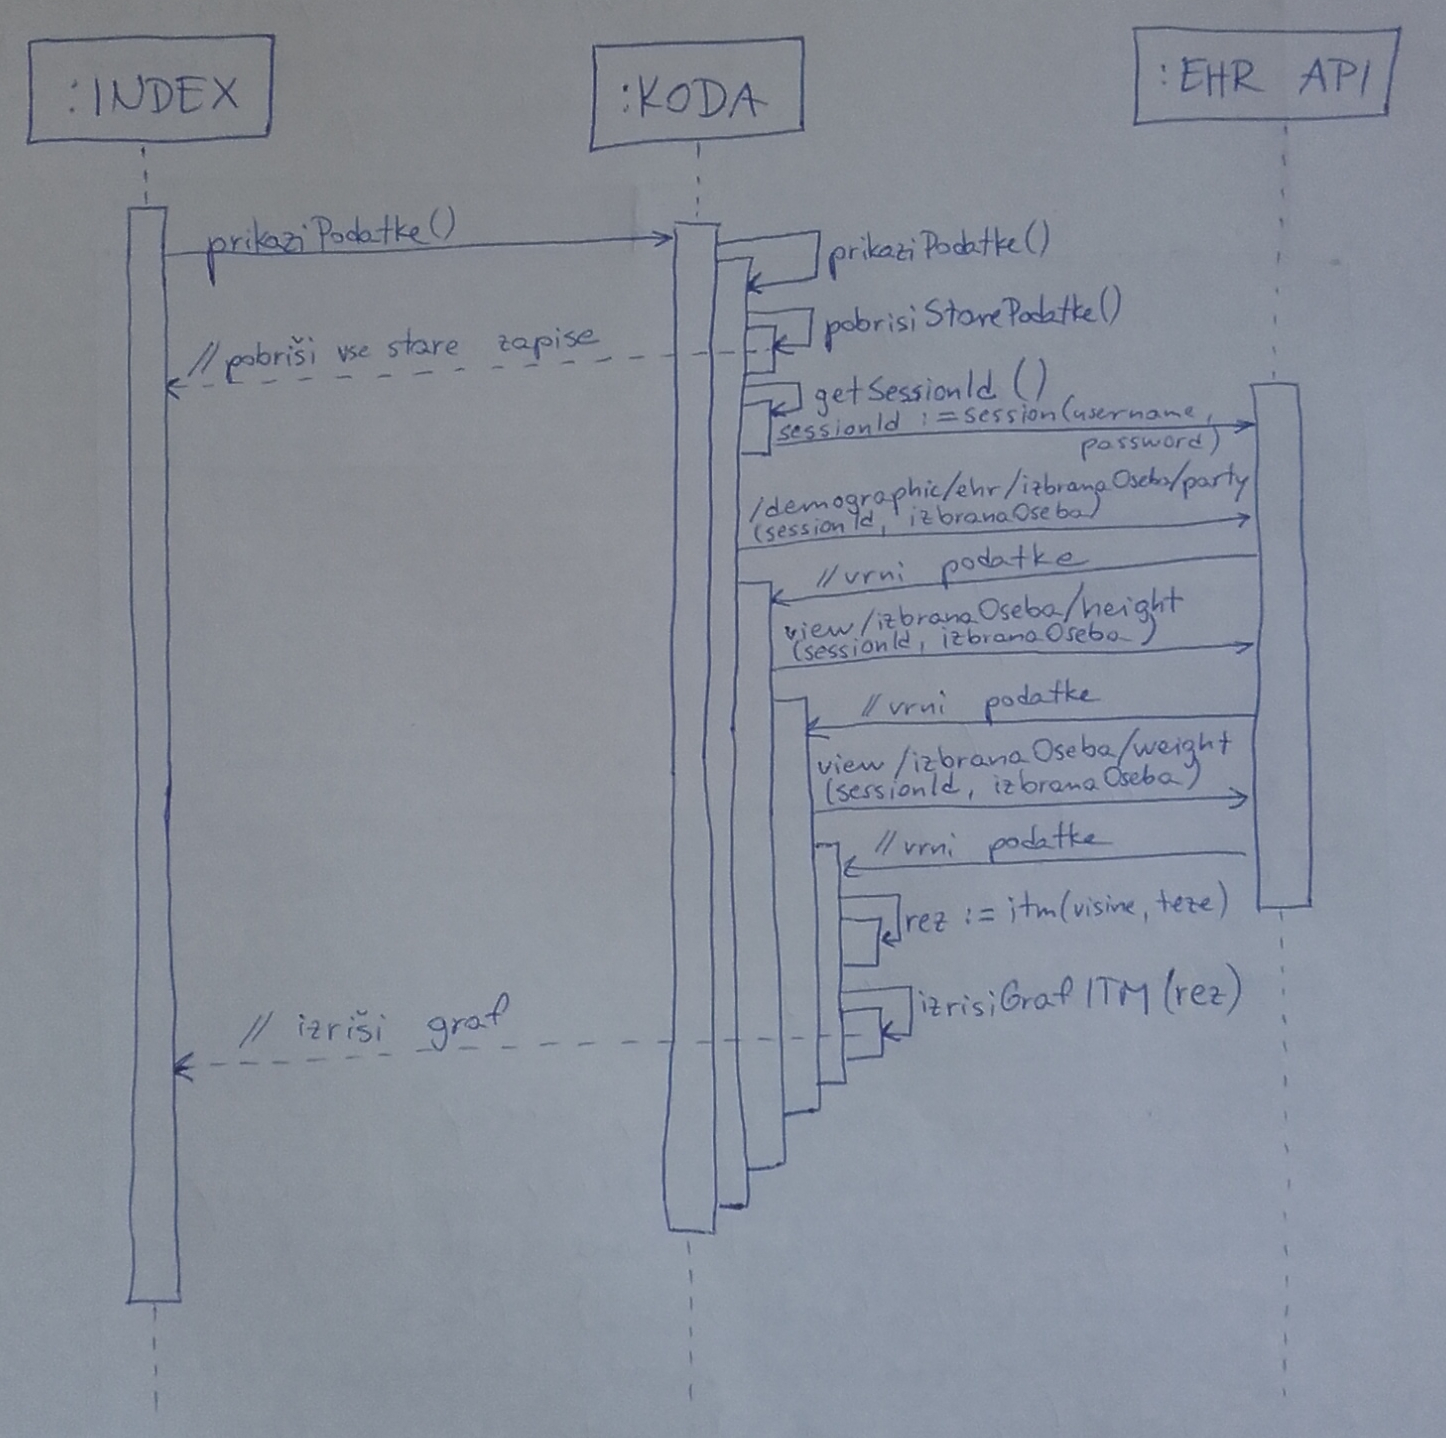 :INDEX
:KODA
:EHR API
prikaziPodatke()
prikaziPodatke()
pobrisiStarePodatke()
// pobriši vse stare zapise
getSessionId ()
sessionId := session(username,
password)
/demographic/ehr/izbranaOseba/party
(sessionId, izbranaOseba)
// vrni podatke
view/izbranaOseba/height
(sessionId, izbranaOseba)
// vrni podatke
view/izbranaOseba/weight
(sessionId, izbranaOseba)
// vrni podatke
rez := itm(visine, teze)
izrisiGrafITM(rez)
// izriši graf